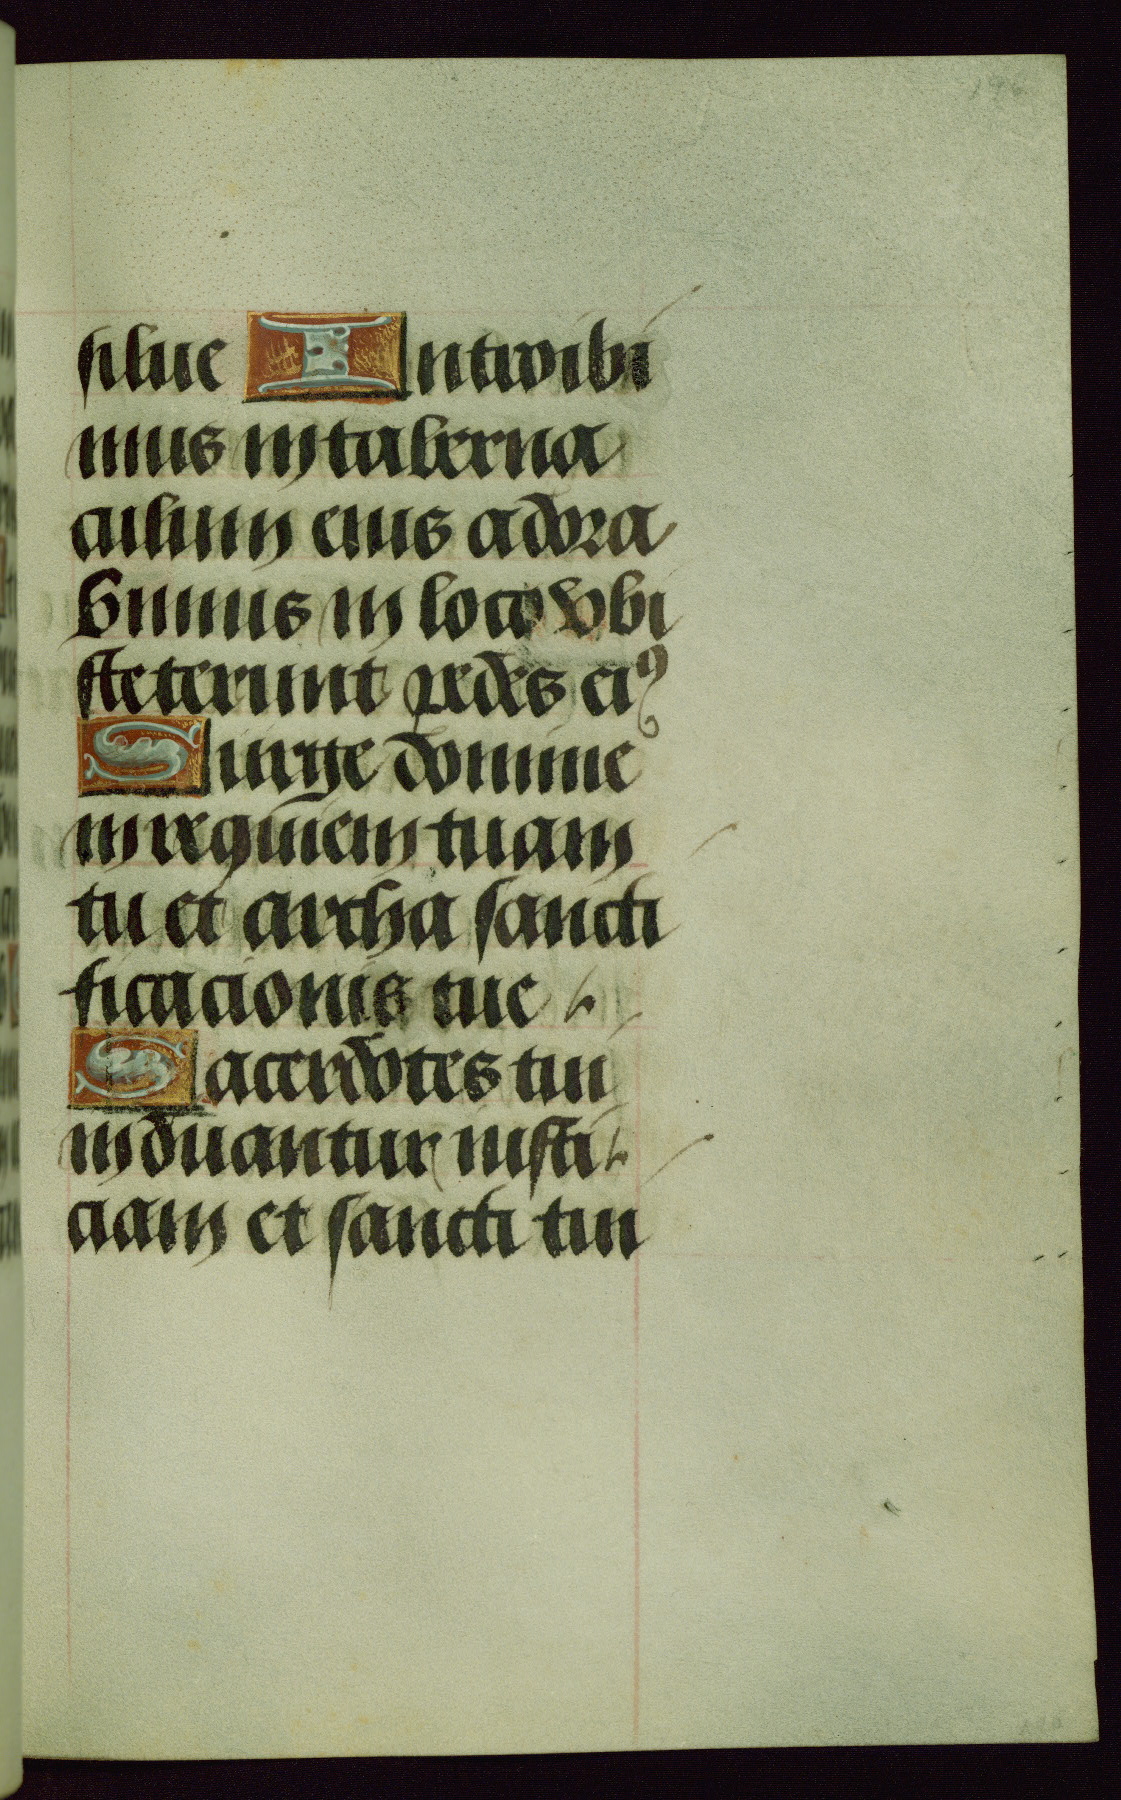 silue Introibi
mus in taberna
culum eius adora
bimus in loco vbi
steterunt pedes ei⁹
Surge domine
in requiem tuam
tu et archa sancti
ficacionis tue
Sacerdotes tui
induantur iusti
ciam et sancti tui